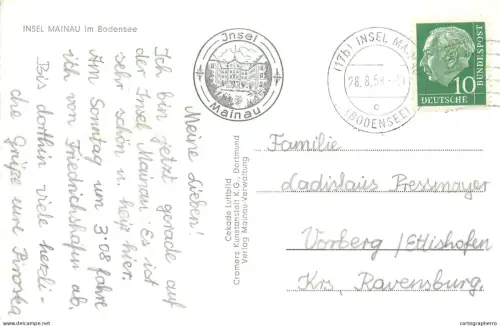 INSEL MAINAU im Bodensee
Meine Lieben!
Ich bin jetzt gerade auf
der Insel Mainau. Es ist
sehr schön u. heiß hier.
Am Sonntag um 3:08 fahre
ich von Friedrichshafen ab.
Bis dorthin viele herzli-
che Grüße eure Piroska
Insel
Mainau
Cekade Luftbild
Cramers Kunstanstalt K.G., Dortmund
Verlag Mainau-Verwaltung
(17b) INSEL MAINAU
28.8.58
c
(BODENSEE)
10
DEUTSCHE
BUNDESPOST
Familie
Ladislaus Pressmayer
Vorberg/Ettishofen
Krs. Ravensburg.
www.cartographer.info